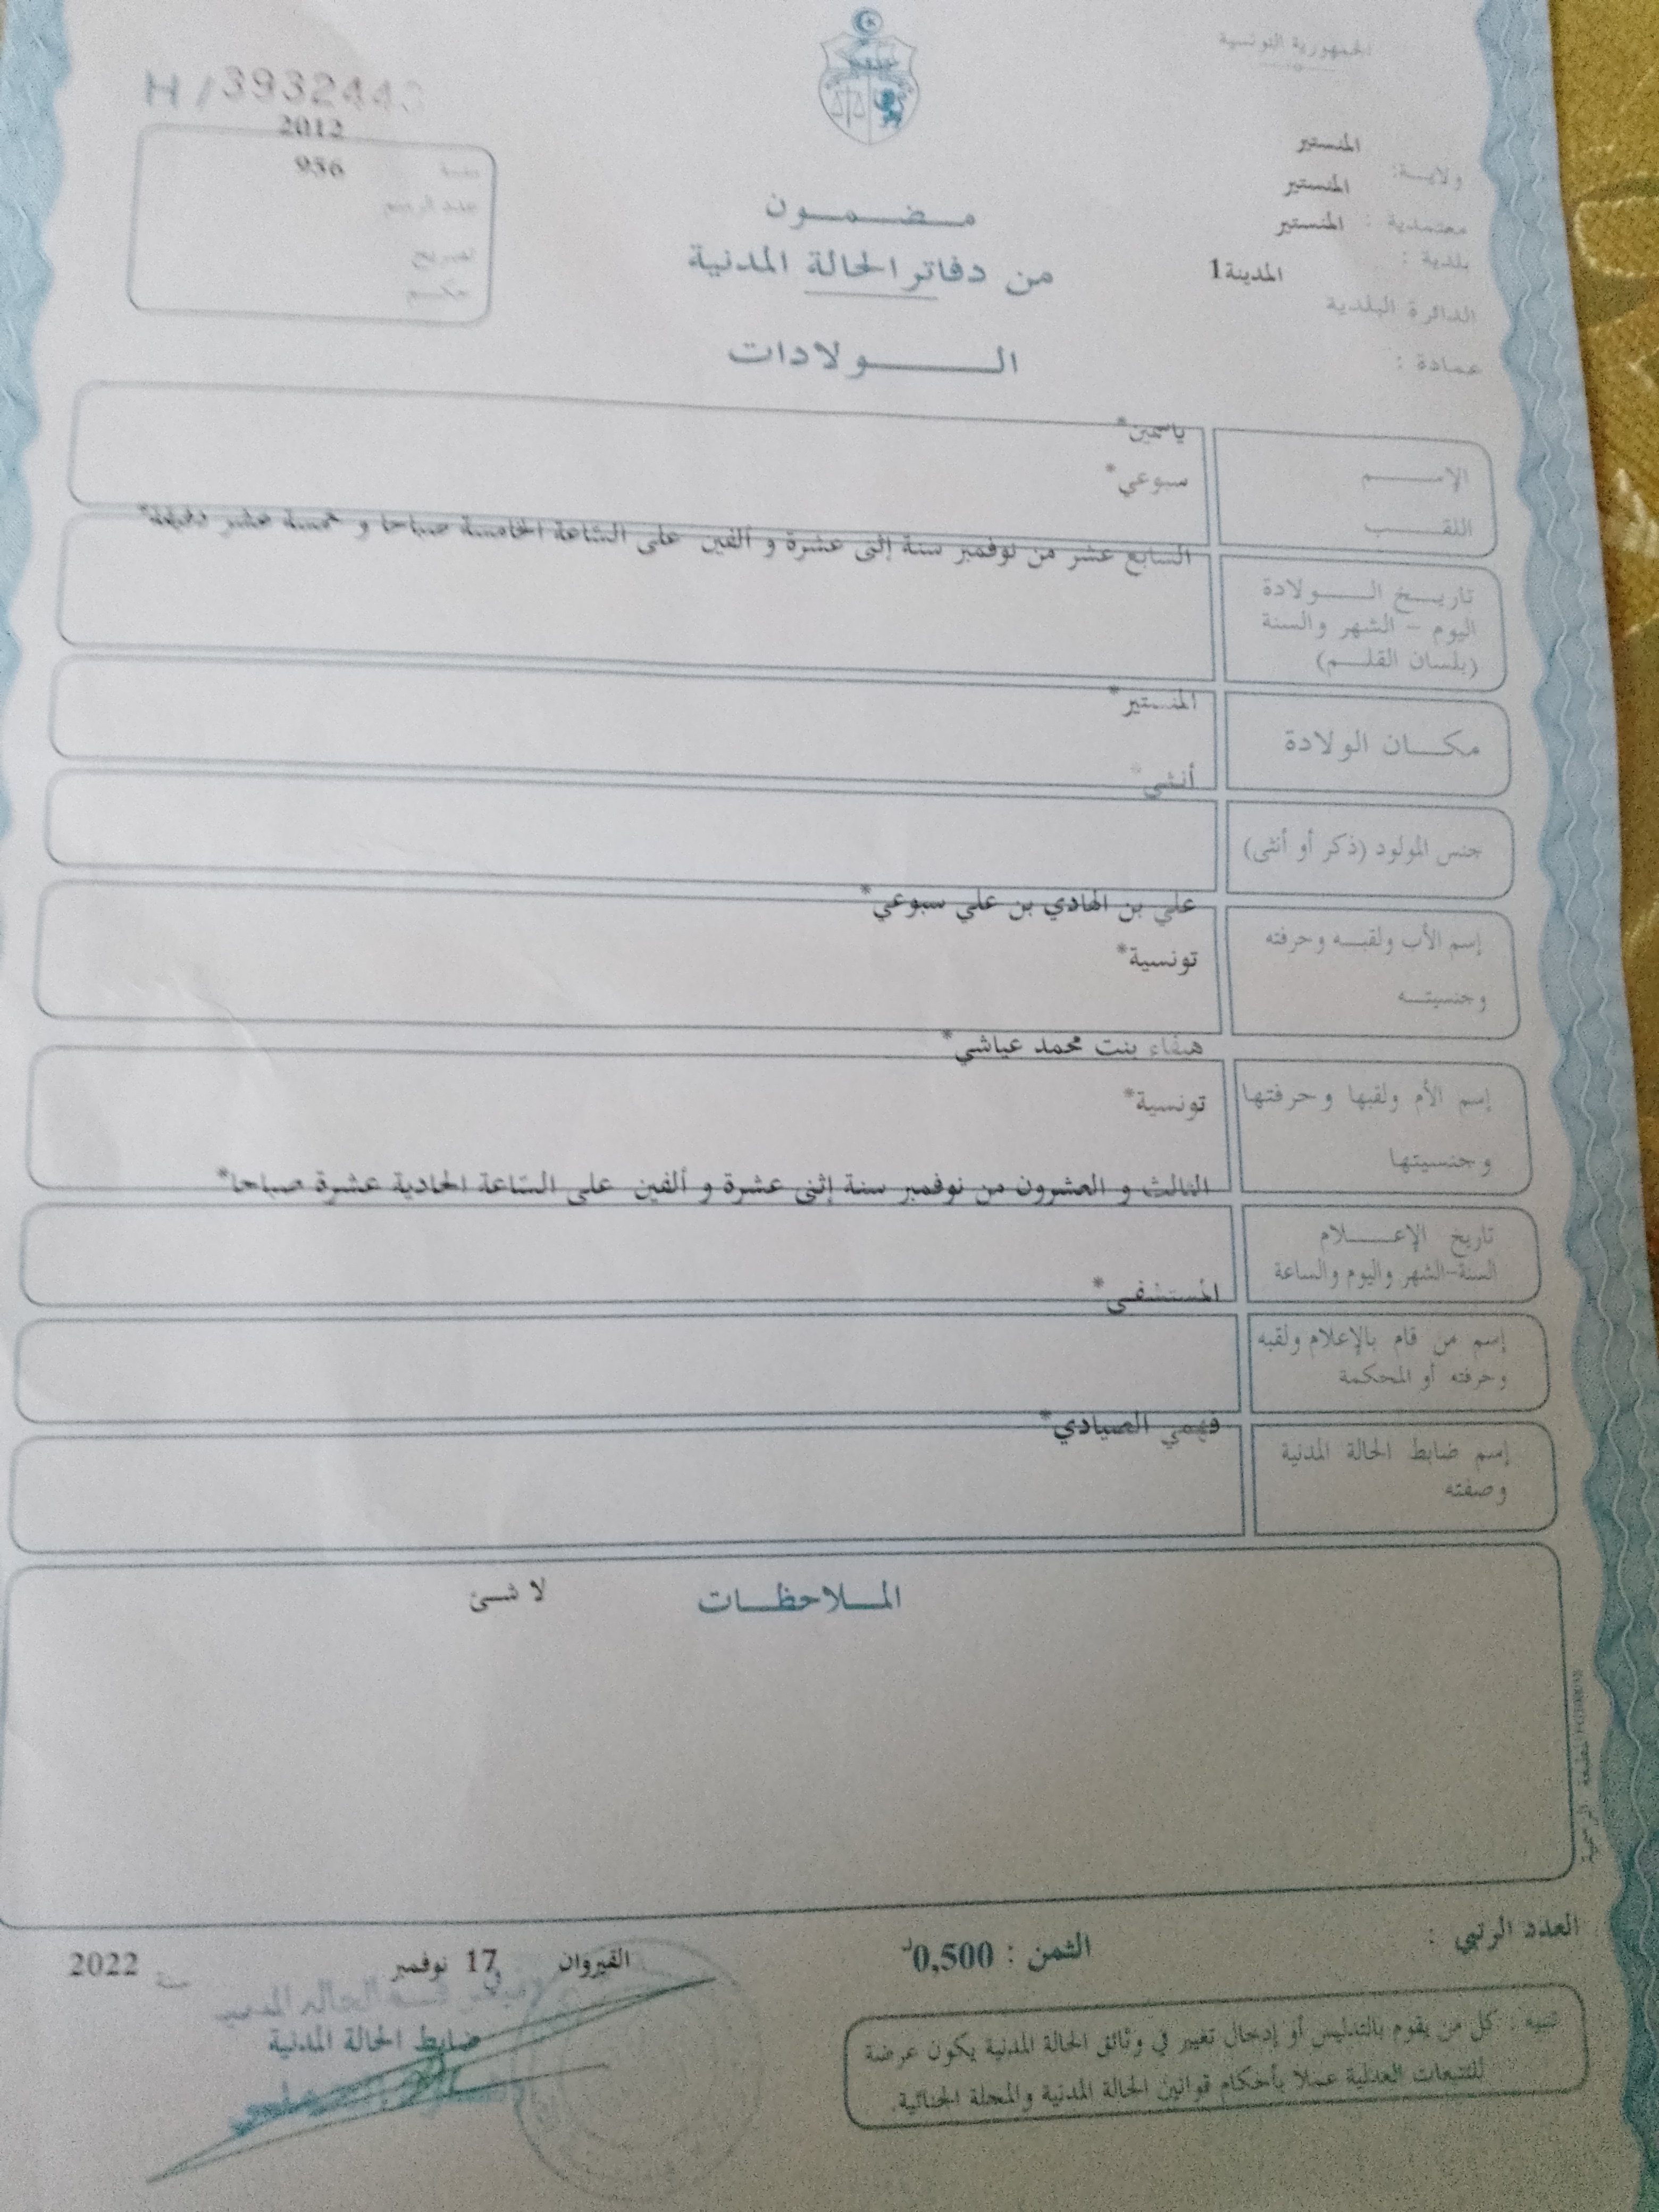 الجمهورية التونسية
H / 3932443
2012
سنة 956
عدد الرسم
تصريح
حكم
المنستير
ولاية:
المنستير
معتمدية : المنستير
بلدية :
المدينة1
الدائرة البلدية
عمادة :
مضمون
من دفاتر الحالة المدنية
الولادات
ياسمين*
الإسم
سبوعي*
اللقب
السابع عشر من نوفمبر سنة إثنى عشرة و ألفين على الساعة الخامسة صباحا و خمسة عشر دقيقة*
تاريخ الولادة
اليوم - الشهر والسنة
(بلسان القلم)
المنستير*
مكان الولادة
أنثى*
جنس المولود (ذكر أو أنثى)
علي بن الهادي بن علي سبوعي*
إسم الأب ولقبه وحرفته
تونسية*
وجنسيته
هيفاء بنت محمد عياشي*
إسم الأم ولقبها وحرفتها
تونسية*
وجنسيتها
الثالث و العشرون من نوفمبر سنة إثنى عشرة و ألفين على الساعة الحادية عشرة صباحا*
تاريخ الإعلام
السنة-الشهر واليوم والساعة
المستشفى*
إسم من قام بالإعلام ولقبه
وحرفته أو المحكمة
فهمي الصيادي*
إسم ضابط الحالة المدنية
وصفته
الملاحظات
لا شئ
المطبعة الرسمية
العدد الرتبي :
الثمن : 0,500د
القيروان في 17 نوفمبر سنة 2022
ضابط الحالة المدنية
تنبيه : كل من يقوم بالتدليس أو إدخال تغيير في وثائق الحالة المدنية يكون عرضة
للتتبعات العدلية عملا بأحكام قوانين الحالة المدنية والمجلة الجنائية.